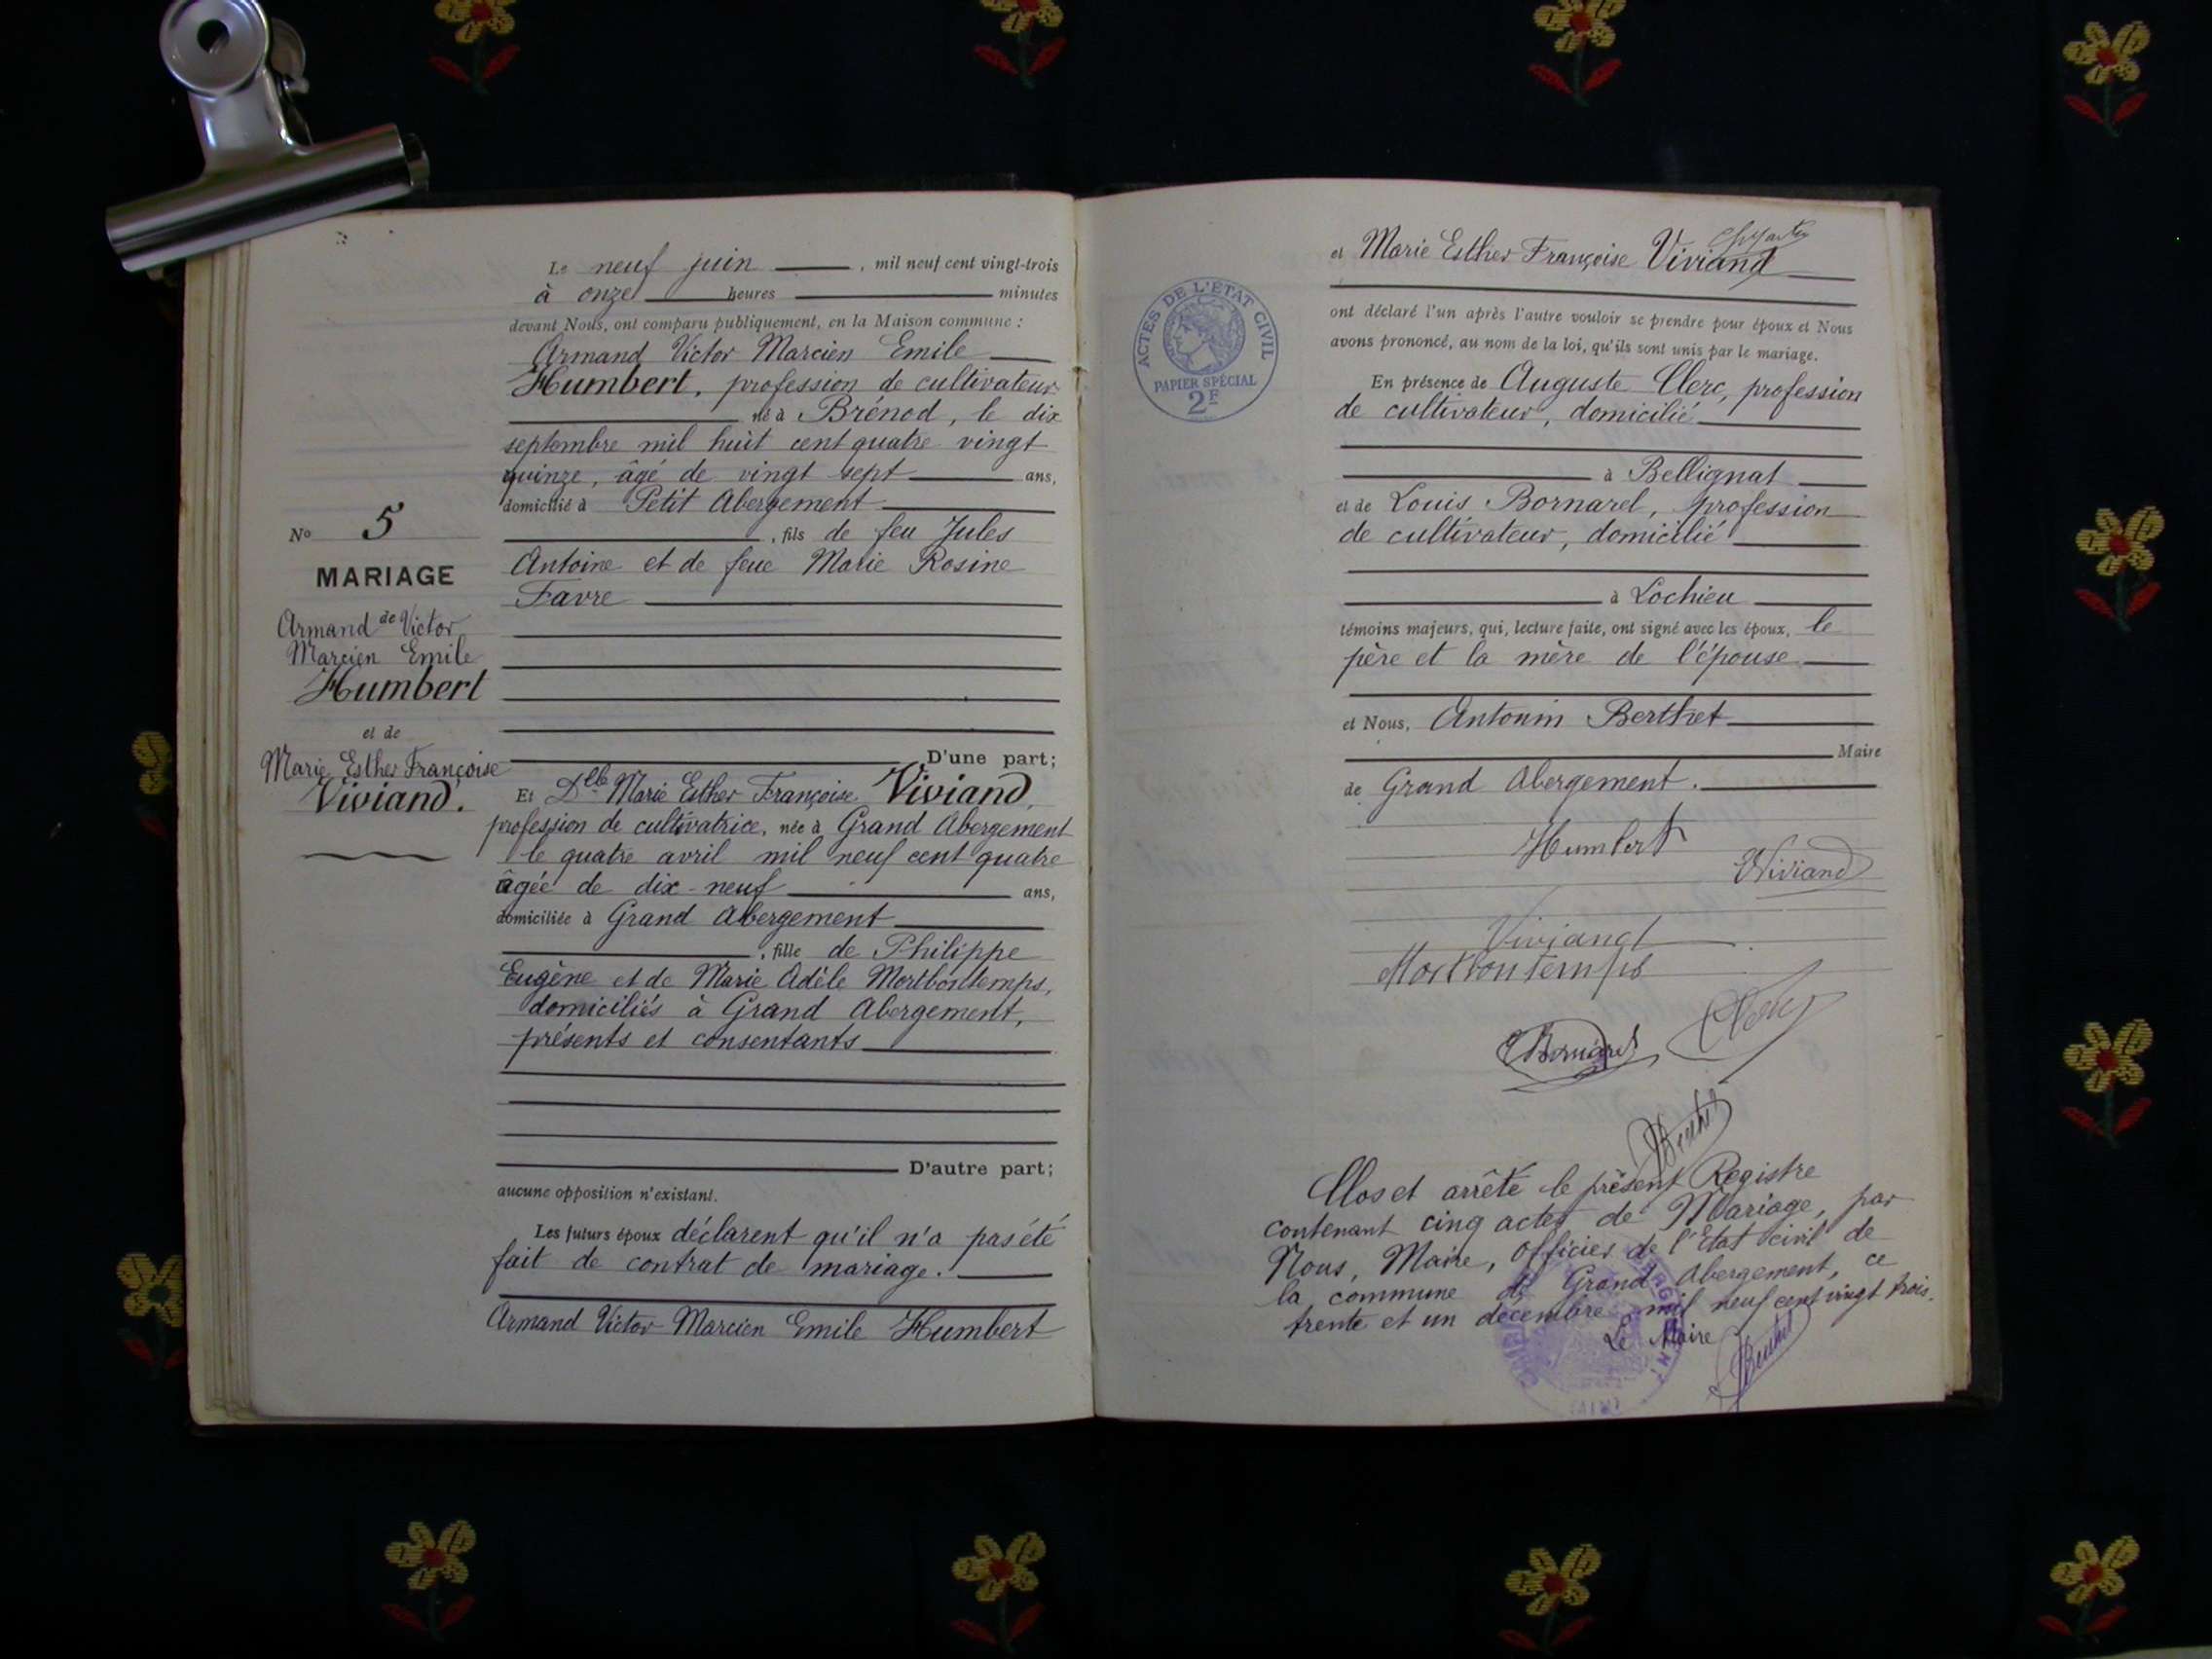 Le neuf juin, mil neuf cent vingt-trois
à onze heures minutes
devant Nous, ont comparu publiquement, en la Maison commune :
Armand Victor Marcien Emile
Humbert, profession de cultivateur
né à Brénod, le dix
septembre mil huit cent quatre vingt
quinze, âgé de vingt sept ans,
domicilié à Petit Abergement
, fils de feu Jules
Antoine et de feue Marie Rosine
Favre
D'une part;
Et Dlle Marie Esther Françoise Viviand,
profession de cultivatrice, née à Grand Abergement
le quatre avril mil neuf cent quatre
âgée de dix-neuf ans,
domiciliée à Grand Abergement
, fille de Philippe
Eugène et de Marie Adèle Mortbontemps,
domiciliés à Grand Abergement,
présents et consentants
D'autre part;
aucune opposition n'existant.
Les futurs époux déclarent qu'il n'a pas été
fait de contrat de mariage.
Armand Victor Marcien Emile Humbert
No 5
MARIAGE
de
Armand Victor
Marcien Emile
Humbert
et de
Marie Esther Françoise
Viviand.
et Marie Esther Françoise Viviand
ont déclaré l'un après l'autre vouloir se prendre pour époux et Nous
avons prononcé, au nom de la loi, qu'ils sont unis par le mariage.
En présence de Auguste Clerc, profession
de cultivateur, domicilié
à Bellignat
et de Louis Bornarel, profession
de cultivateur, domicilié
à Lochieu
témoins majeurs, qui, lecture faite, ont signé avec les époux, le
père et la mère de l'épouse
et Nous, Antonin Berthet
Maire
de Grand Abergement.
Humbert
Viviand
Viviand
Mortbontemps
Clerc
Bornarel
Berthet
Clos et arrêté le présent Registre
contenant cinq actes de Mariage, par
Nous, Maire, Officier de l'Etat civil de
la commune de Grand Abergement, ce
trente et un décembre mil neuf cent vingt trois.
Le Maire
Berthet
ACTES DE L'ETAT CIVIL
PAPIER SPÉCIAL
2F
(AIN)